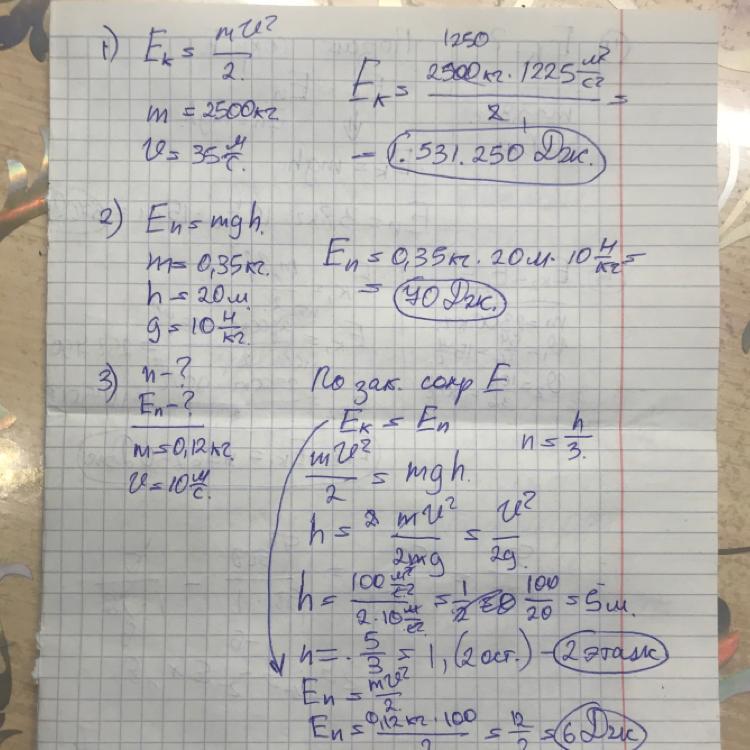 1) Eк = mV²/2
m = 2500 кг
V = 35 м/с.
1250
Eк = 2500 кг · 1225 м²/с² / 2 =
= 1.531.250 Дж.
2) Eп = mgh.
m = 0,35 кг.
h = 20 м.
g = 10 Н/кг.
Eп = 0,35 кг · 20 м · 10 Н/кг =
= 70 Дж.
3) n - ?
Eп - ?
m = 0,12 кг.
V = 10 м/с.
По зак. сохр E
Eк = Eп
n = h/3.
mV²/2 = mgh.
h = mV²/2mg = V²/2g.
h = 100 м²/с² / 2·10 м/с² = 100/20 = 5 м.
n = 5/3 = 1, (2 ост.) – 2 этаж
Eп = mV²/2
Eп = 0,12 кг · 100 / 2 = 12/2 = 6 Дж